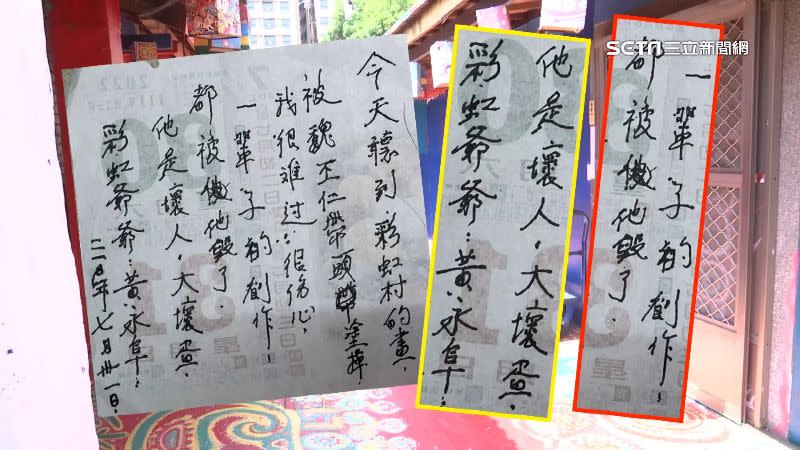 SETN三立新聞網
今天聽到彩虹村的畫，
被魏丕仁帶頭塗掉，
我很難過：很傷心，
一輩子的創作，
都被他毀了．
他是壞人，大壞蛋，
彩虹爺爺：黃永阜：
年七月卅一日．
2022
他是壞人，大壞蛋，
彩虹爺爺：黃永阜：
一輩子的創作，
都被他毀了．